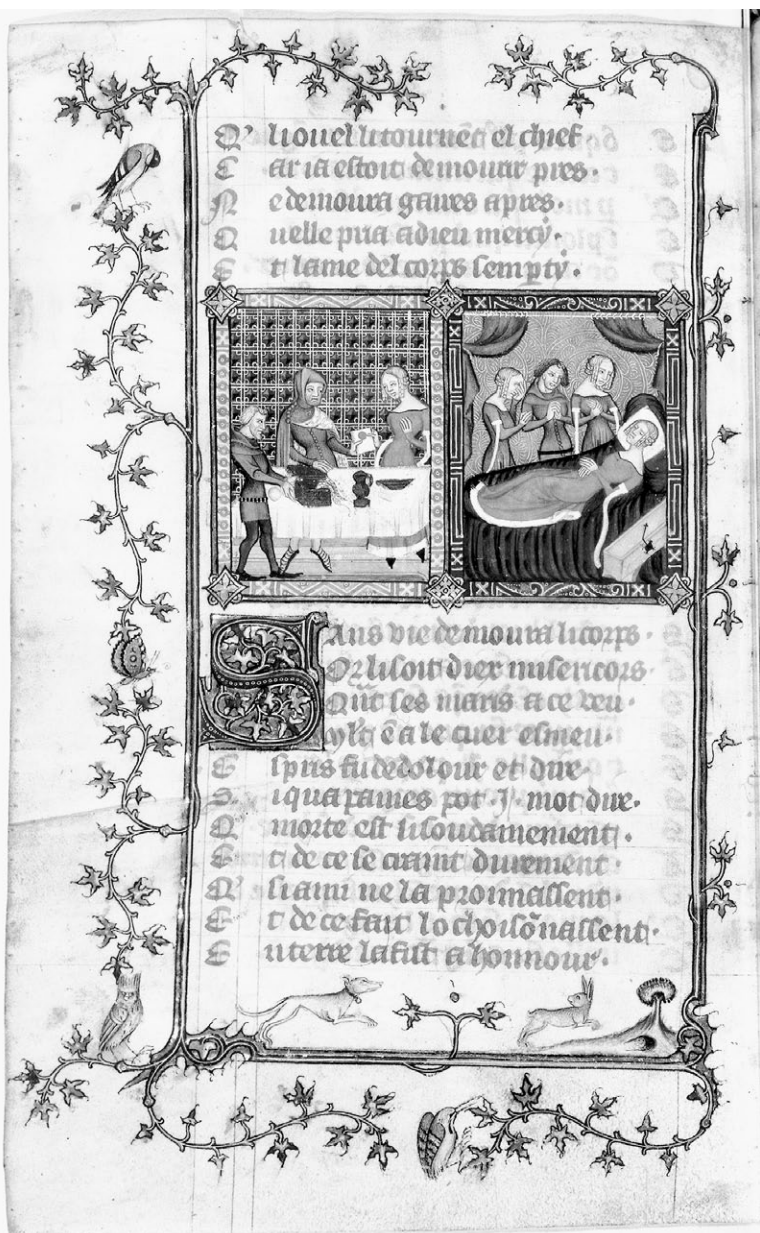 Q' li ouel li tournēt el chief
C ar ia estoit de mourir pres.
N e demoura gaires apres.
Q uelle pria a dieu mercy.
E t lame del corps sempty.
S Ans vie demoura li corps.
OR li soit diex misericors
Qūt ses maris a ce veu.
ylt ē a le cuer esmeu.
E spris fu de dolour et dire.
S i qua paines pot .j. mot dire.
Q morte est si soudainement.
E t de ce se craint durement.
Q' si ami ne la proiuassent.
E t de ce fait lochoisōnassent.
E n terre la fist a honnour.